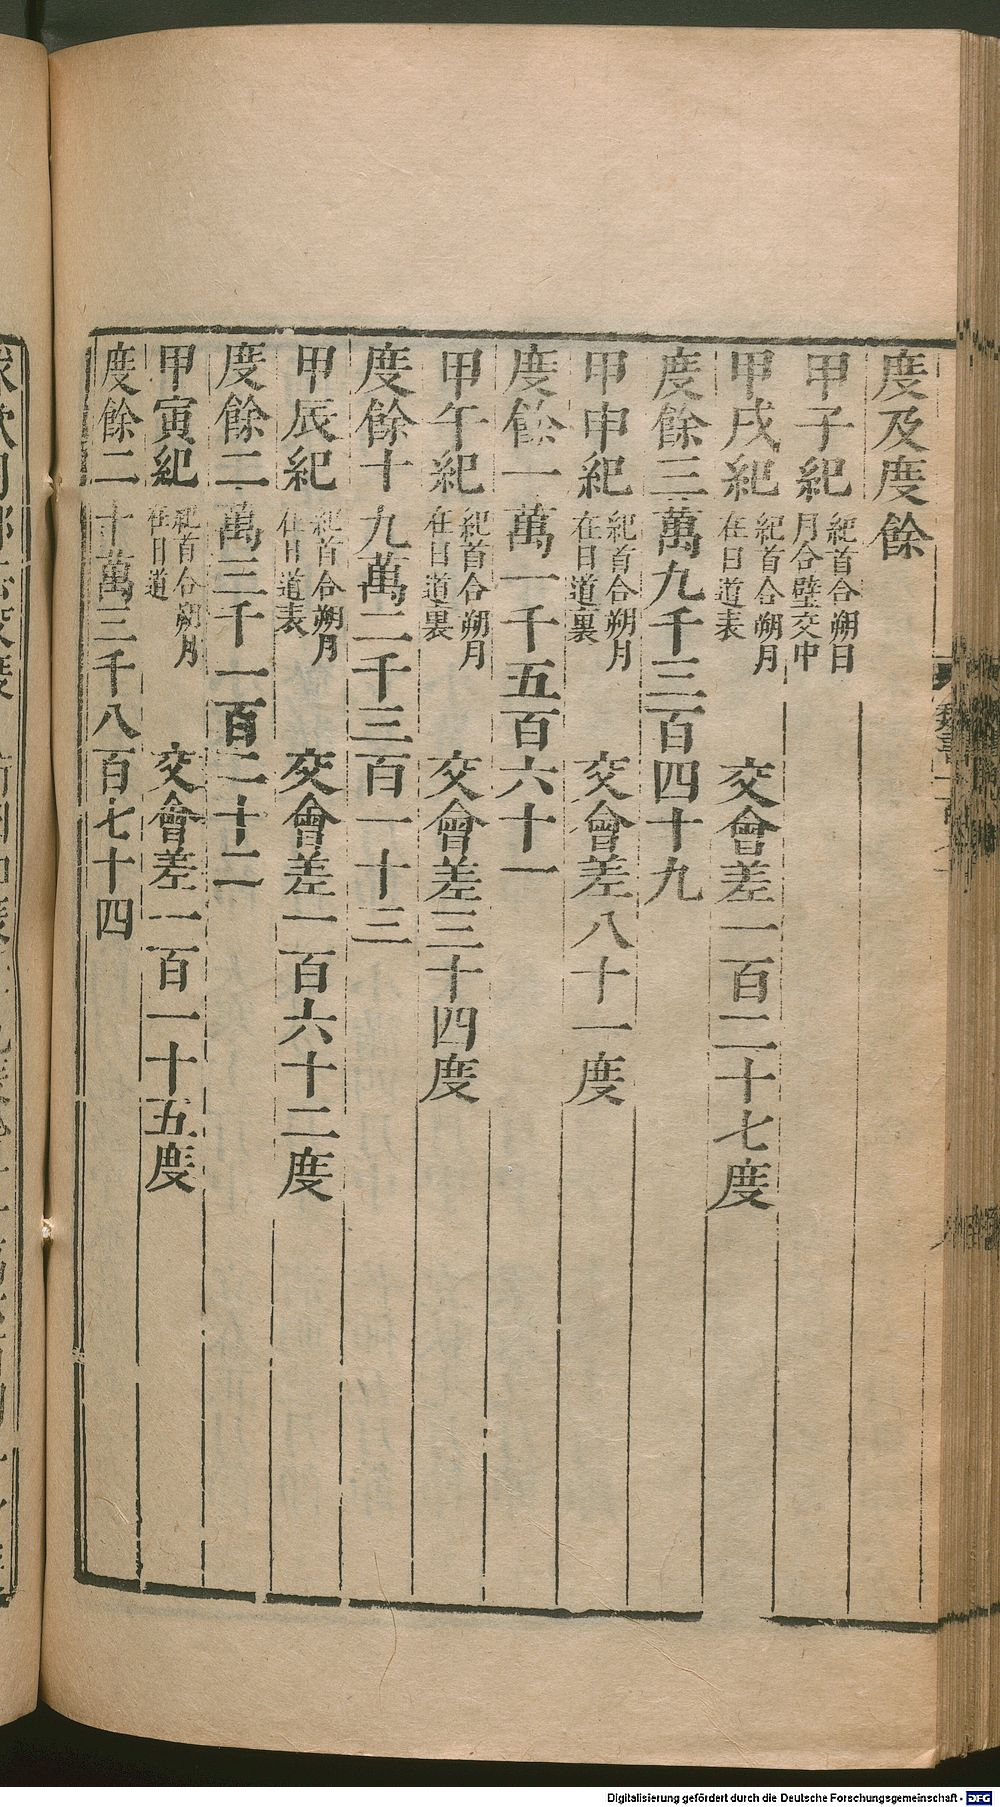 度及度餘
甲子紀 紀首合朔日月合璧交中
甲戌紀 紀首合朔月在日道表 交會差一百二十七度
度餘三萬九千三百四十九
甲申紀 紀首合朔月在日道裏 交會差八十一度
度餘一萬一千五百六十一
甲午紀 紀首合朔月在日道裏 交會差三十四度
度餘十九萬二千三百一十三
甲辰紀 紀首合朔月在日道表 交會差一百六十二度
度餘二萬三千一百二十二
甲寅紀 紀首合朔月在日道 交會差一百一十五度
度餘二十萬三千八百七十四
Digitalisierung gefördert durch die Deutsche Forschungsgemeinschaft - DFG